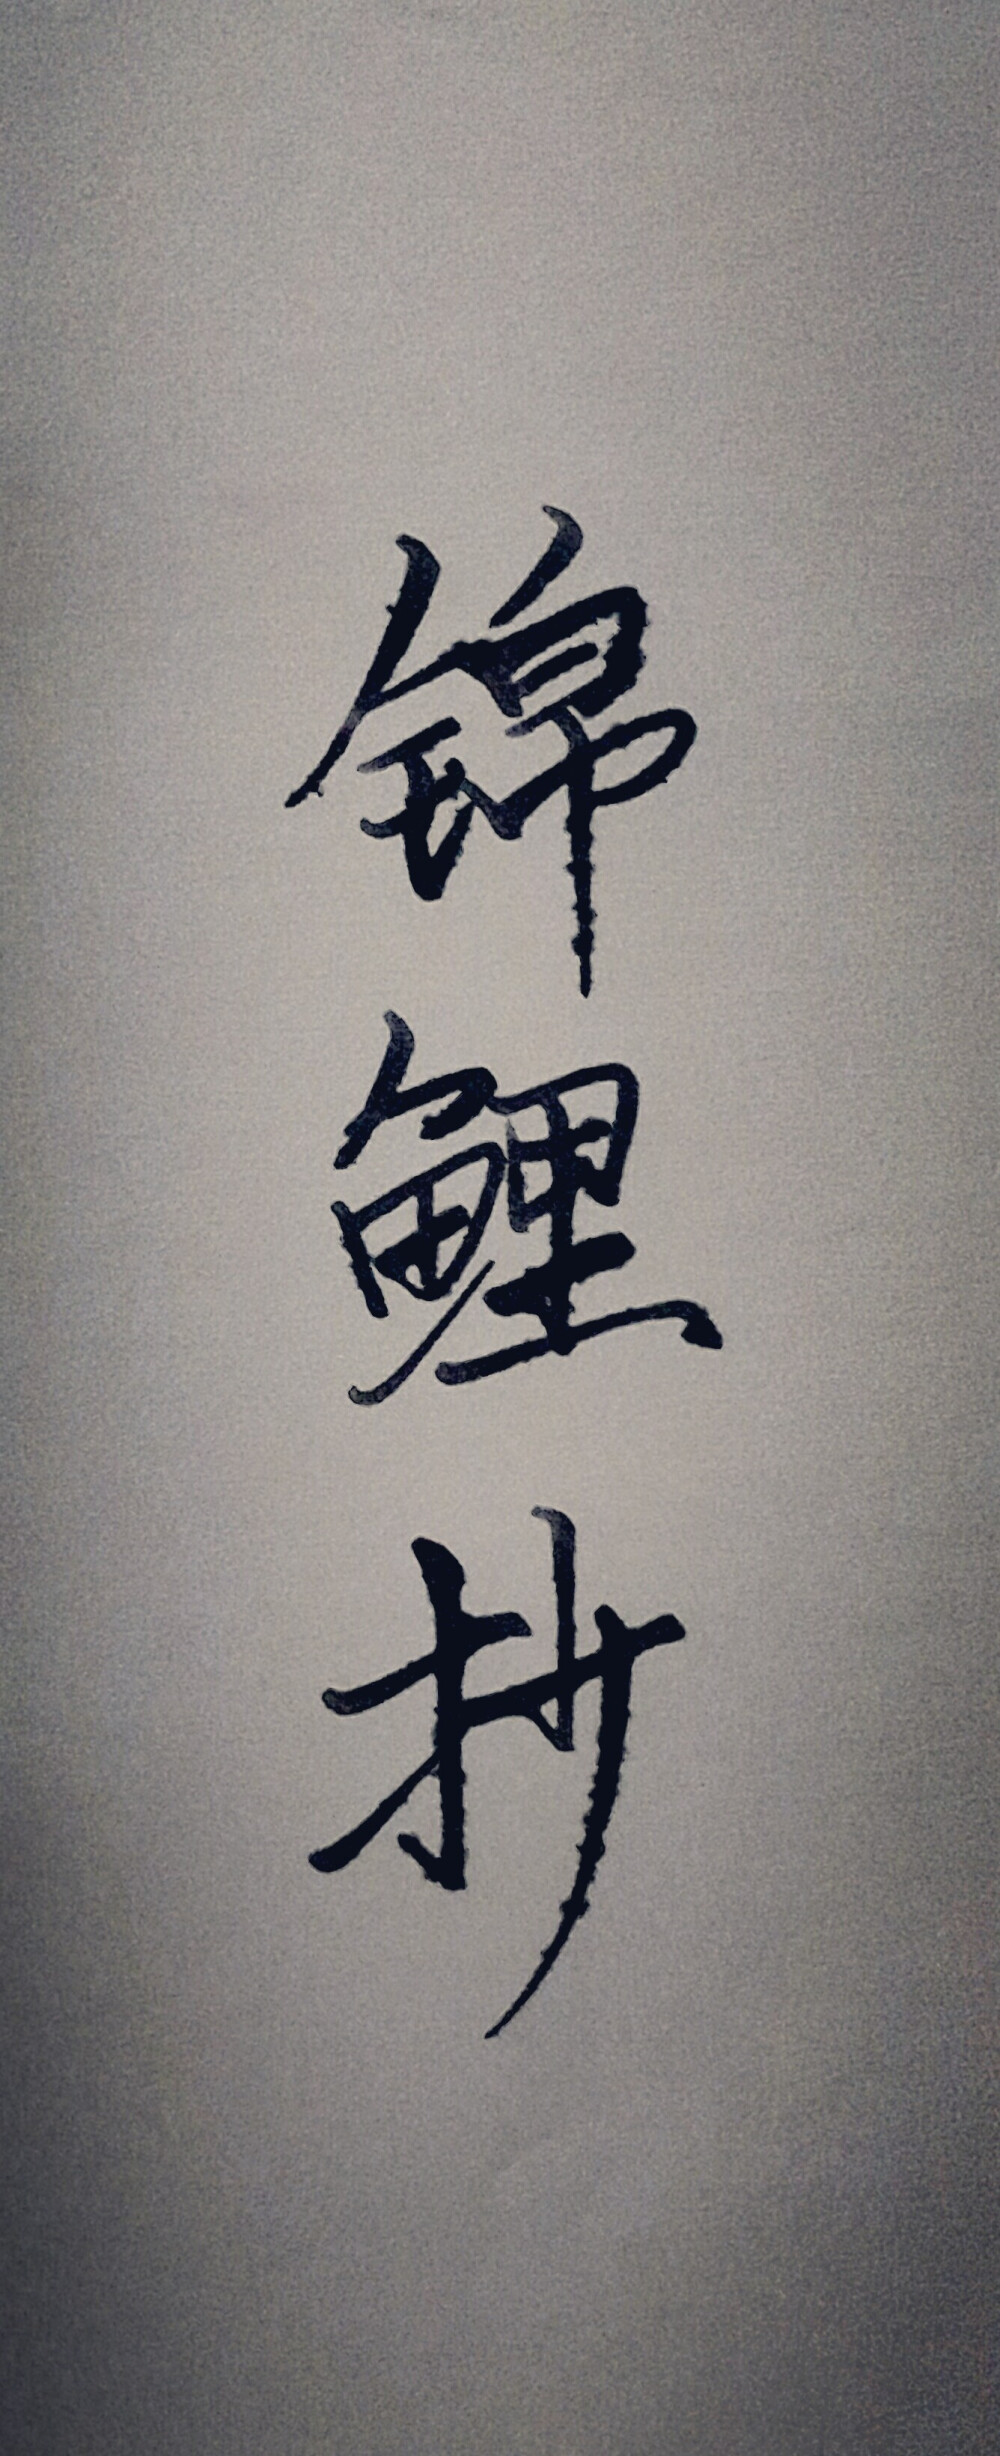 锦鲤抄